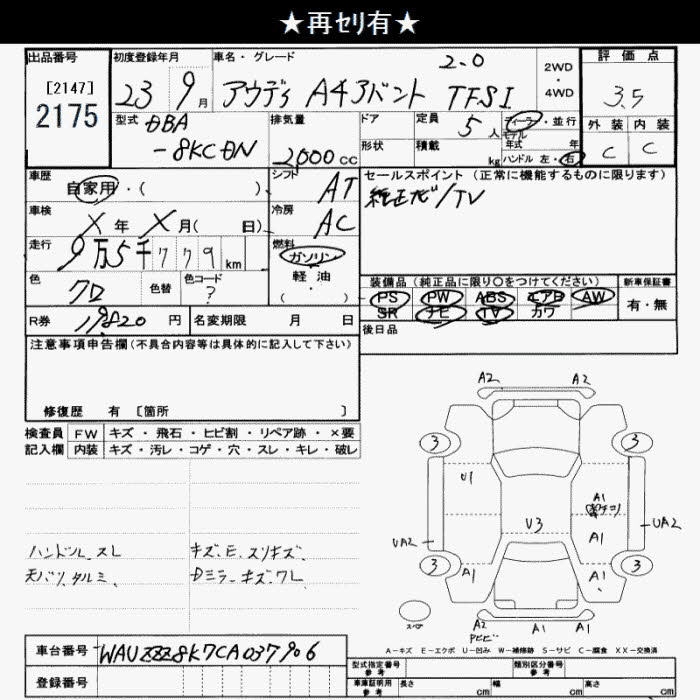 ★再ｾﾘ有★
出品番号 初度登録年月 車名・グレード 2.0 2WD 評価点
[2147] 23 9月 アウディ A4アバント TFSI ・4WD 3.5
2175 型式 DBA 排気量 ドア 定員 5 人 ディーラー・並行 外装 内装
-8KCDN 2000cc 形状 積載 kg モデル 年式 年 C C
ハンドル 左・右
車歴 自家用・( ) シフト AT セールスポイント（正常に機能するものに限ります）
車検 X年 X月( 日) 冷房 AC 純正ナビ/TV
走行 9万5千779km 燃料 ガソリン
軽油
・( )
色 クロ 色替 色コード ? 装備品（純正品に限り〇をつけてください） 新車保証書
PS PW ABS エアB AW 有・無
R券 19820円 名変期限 月 日 SR ナビ TV カワ
後日品
注意事項申告欄(不具合内容等は具体的に記入して下さい)
修復歴 有 [箇所 ]
検査員 FW キズ・飛石・ヒビ割・リペア跡・×要
記入欄 内装 キズ・汚レ・コゲ・穴・スレ・キレ・破レ
A2 A2
3 3
U1 A1
UA2 V3 A1 UA2
3 A1 A1 3
スペア A2 A1 A1
ハンドル、スレ キズ、E、スリキズ、
天バリ、タルミ、 Dミラーキズ、ワレ
A-キズ E-エクボ U-凹み W-補修跡 S-サビ C-腐食 XX-交換済
車台番号 WAUZZZ8K7CA037906
登録番号
型式指定番号 参考 類別区分番号 参考
車庫証明用 参考 長さ cm 幅 cm 高さ cm